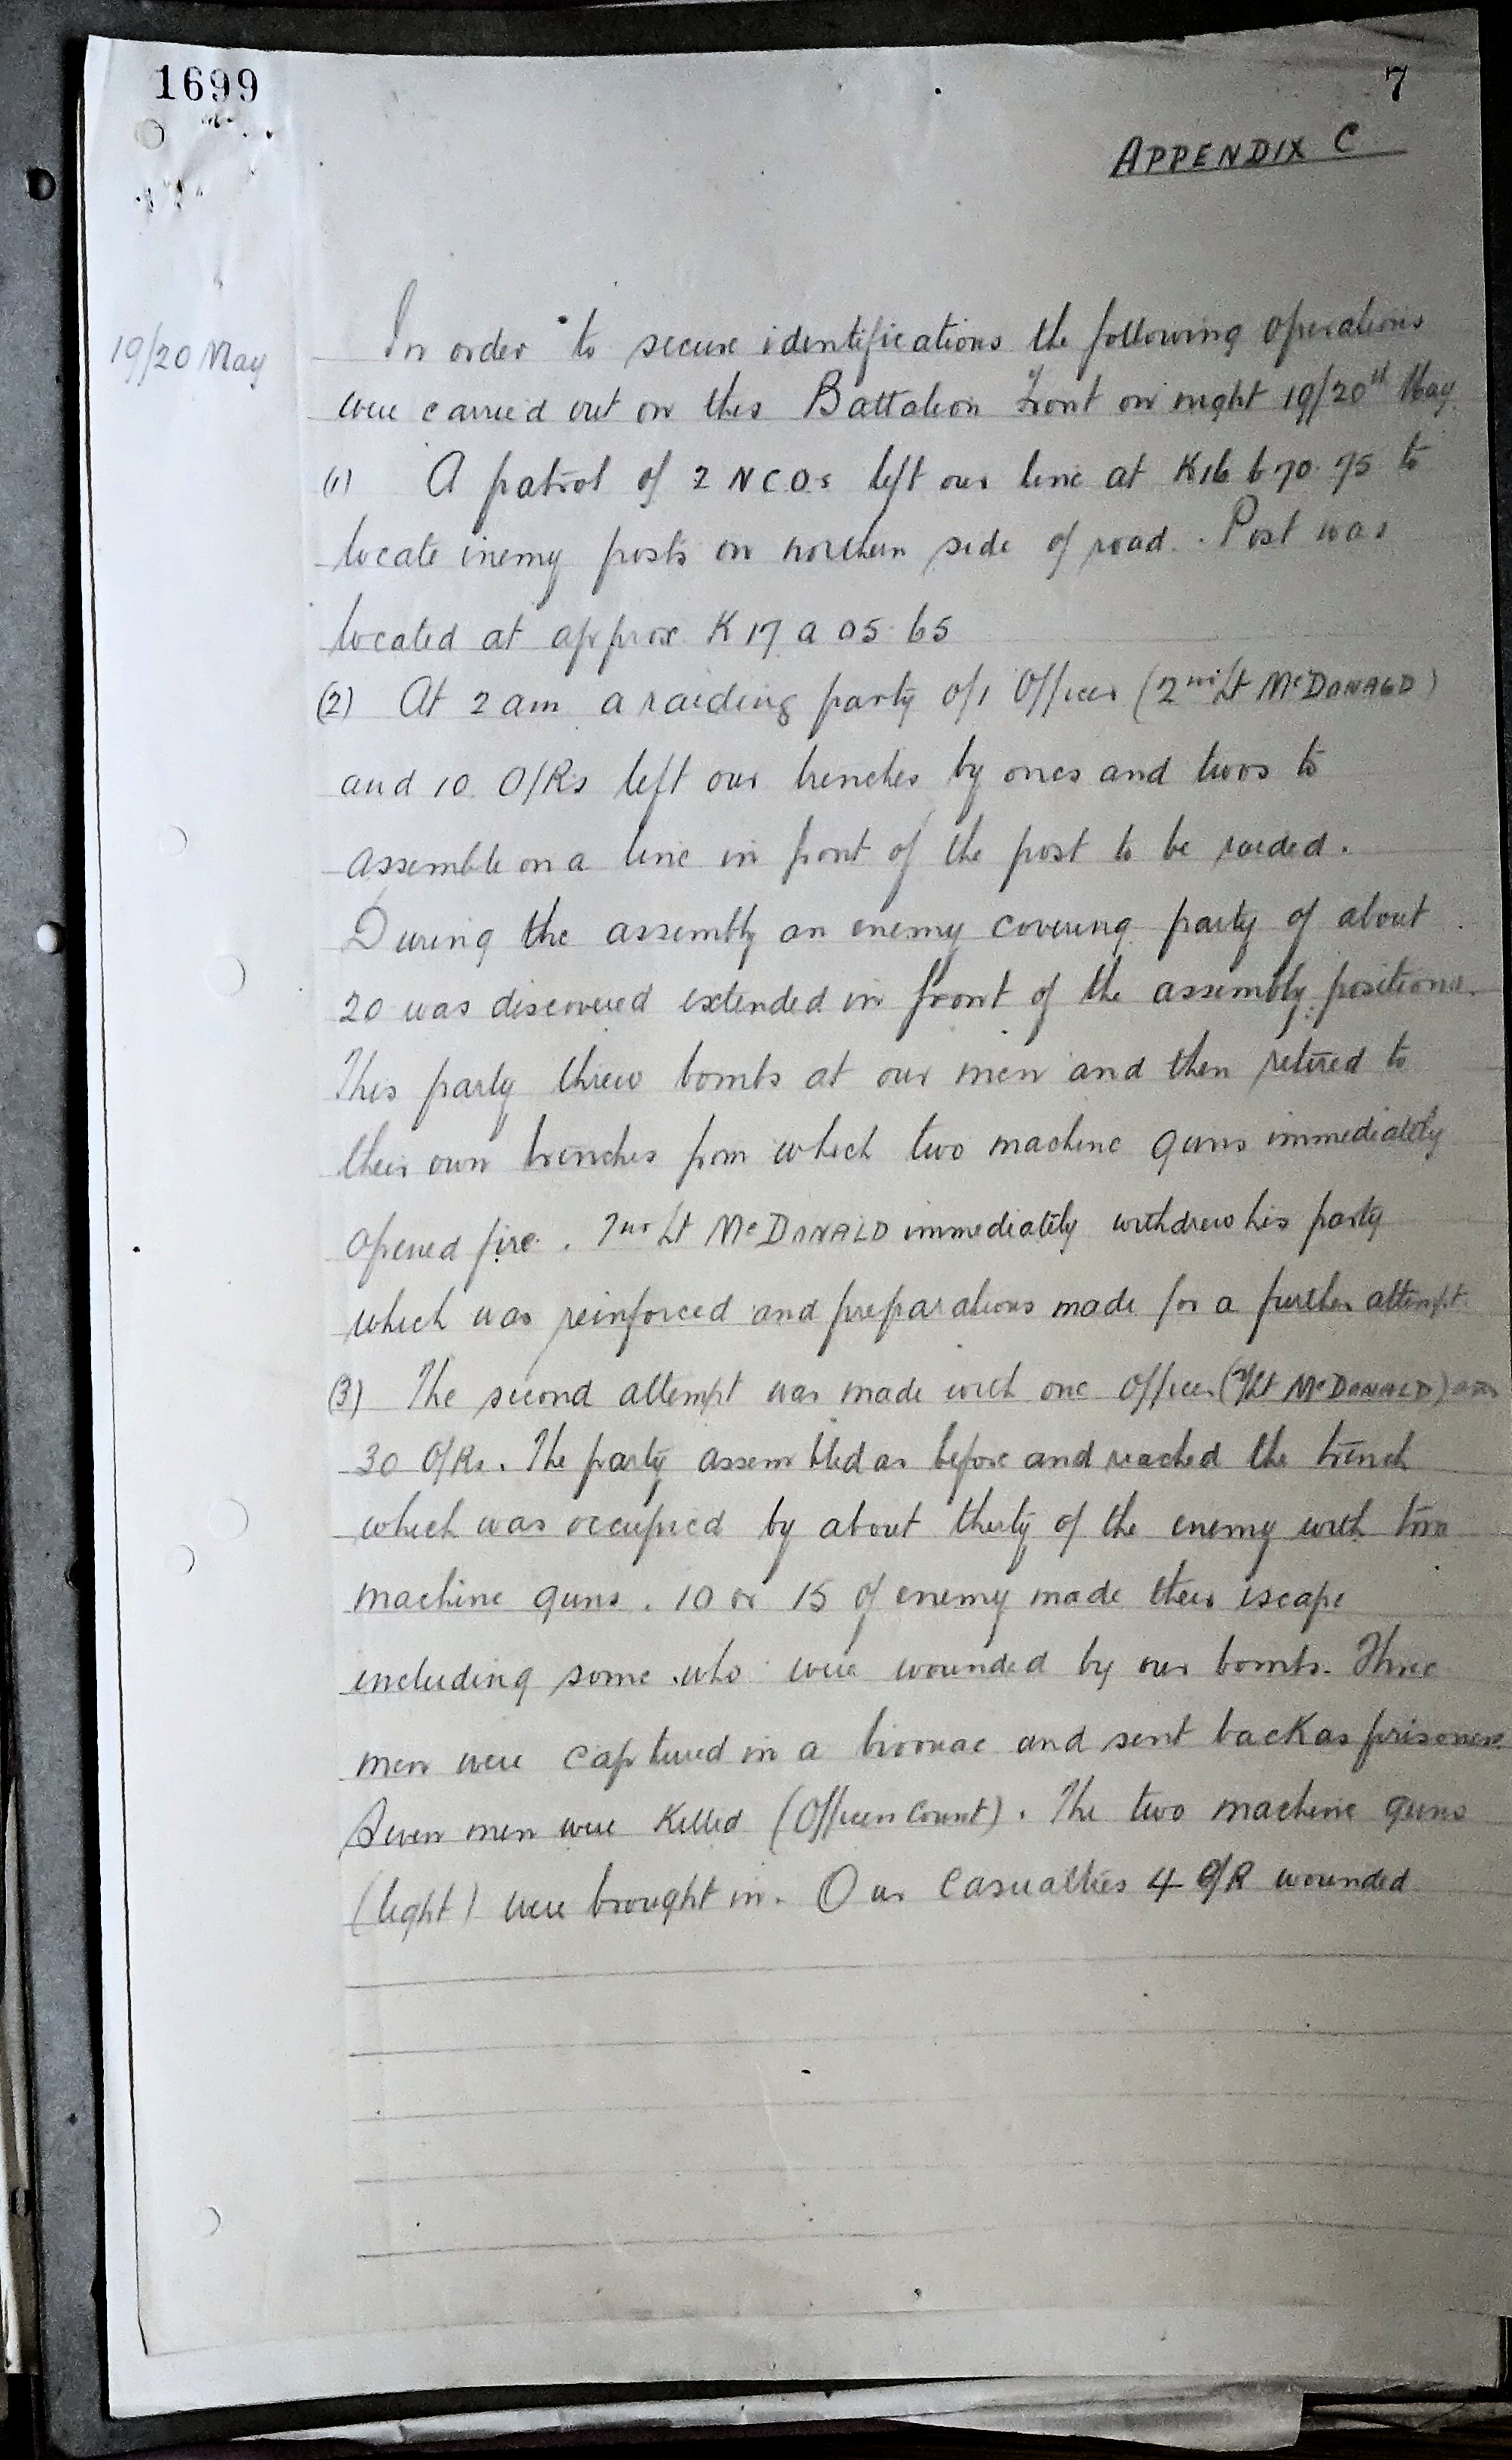 1699
7
APPENDIX C
19/20 May
In order to secure identifications the following operations
were carried out on this Battalion Front on night 19/20th May
(1) A patrol of 2 NCOs left our line at K16 b 70.75 to
locate enemy posts on northern side of road. Post was
located at approx K 17 a 05.65
(2) At 2 am a raiding party of 1 Officer (2nd Lt McDONALD)
and 10 O/Rs left our trenches by ones and twos to
assemble on a line in front of the post to be raided.
During the assembly an enemy covering party of about
20 was discovered extended in front of the assembly positions.
This party threw bombs at our men and then retired to
their own trenches from which two machine guns immediately
opened fire. 2nd Lt McDONALD immediately withdrew his party
which was reinforced and preparations made for a further attempt.
(3) The second attempt was made with one Officer (2/Lt McDONALD) and
30 O/Rs. The party assembled as before and reached the trench
which was occupied by about thirty of the enemy with two
machine guns. 10 or 15 of enemy made their escape
including some who were wounded by our bombs. Three
men were captured in a bivouac and sent back as prisoners.
Seven men were killed (Officers Count). The two machine guns
(light) were brought in. Our Casualties 4 O/R wounded